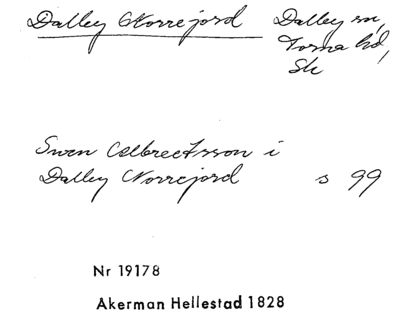 Dalley Norrejord Dalley sn,
Torna hd,
Sk
Swen Albrectsson i
Dalley Norrejord s 99
Nr 19178
Akerman Hellestad 1828